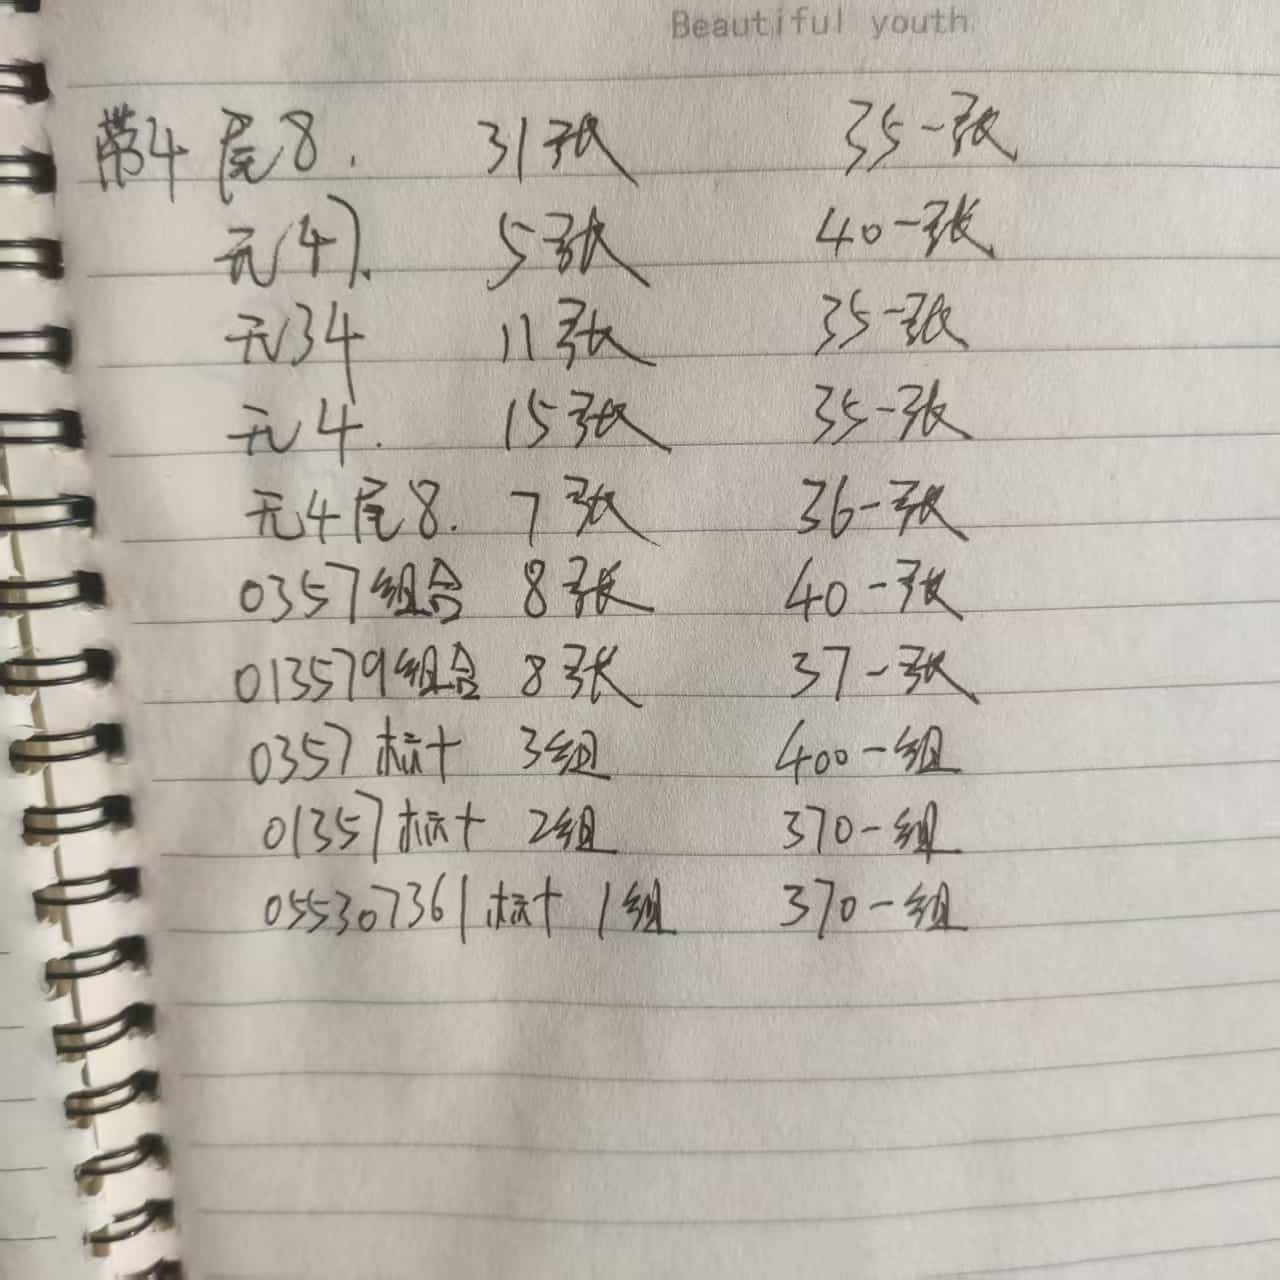 Beautiful youth
带4尾8. 31张 35一张
无47. 5张 40一张
无34 11张 35一张
无4. 15张 35一张
无4尾8. 7张 36一张
0357组合 8张 40一张
013579组合 8张 37一张
0357标十 3组 400一组
01357标十 2组 370一组
055307361标十 1组 370一组